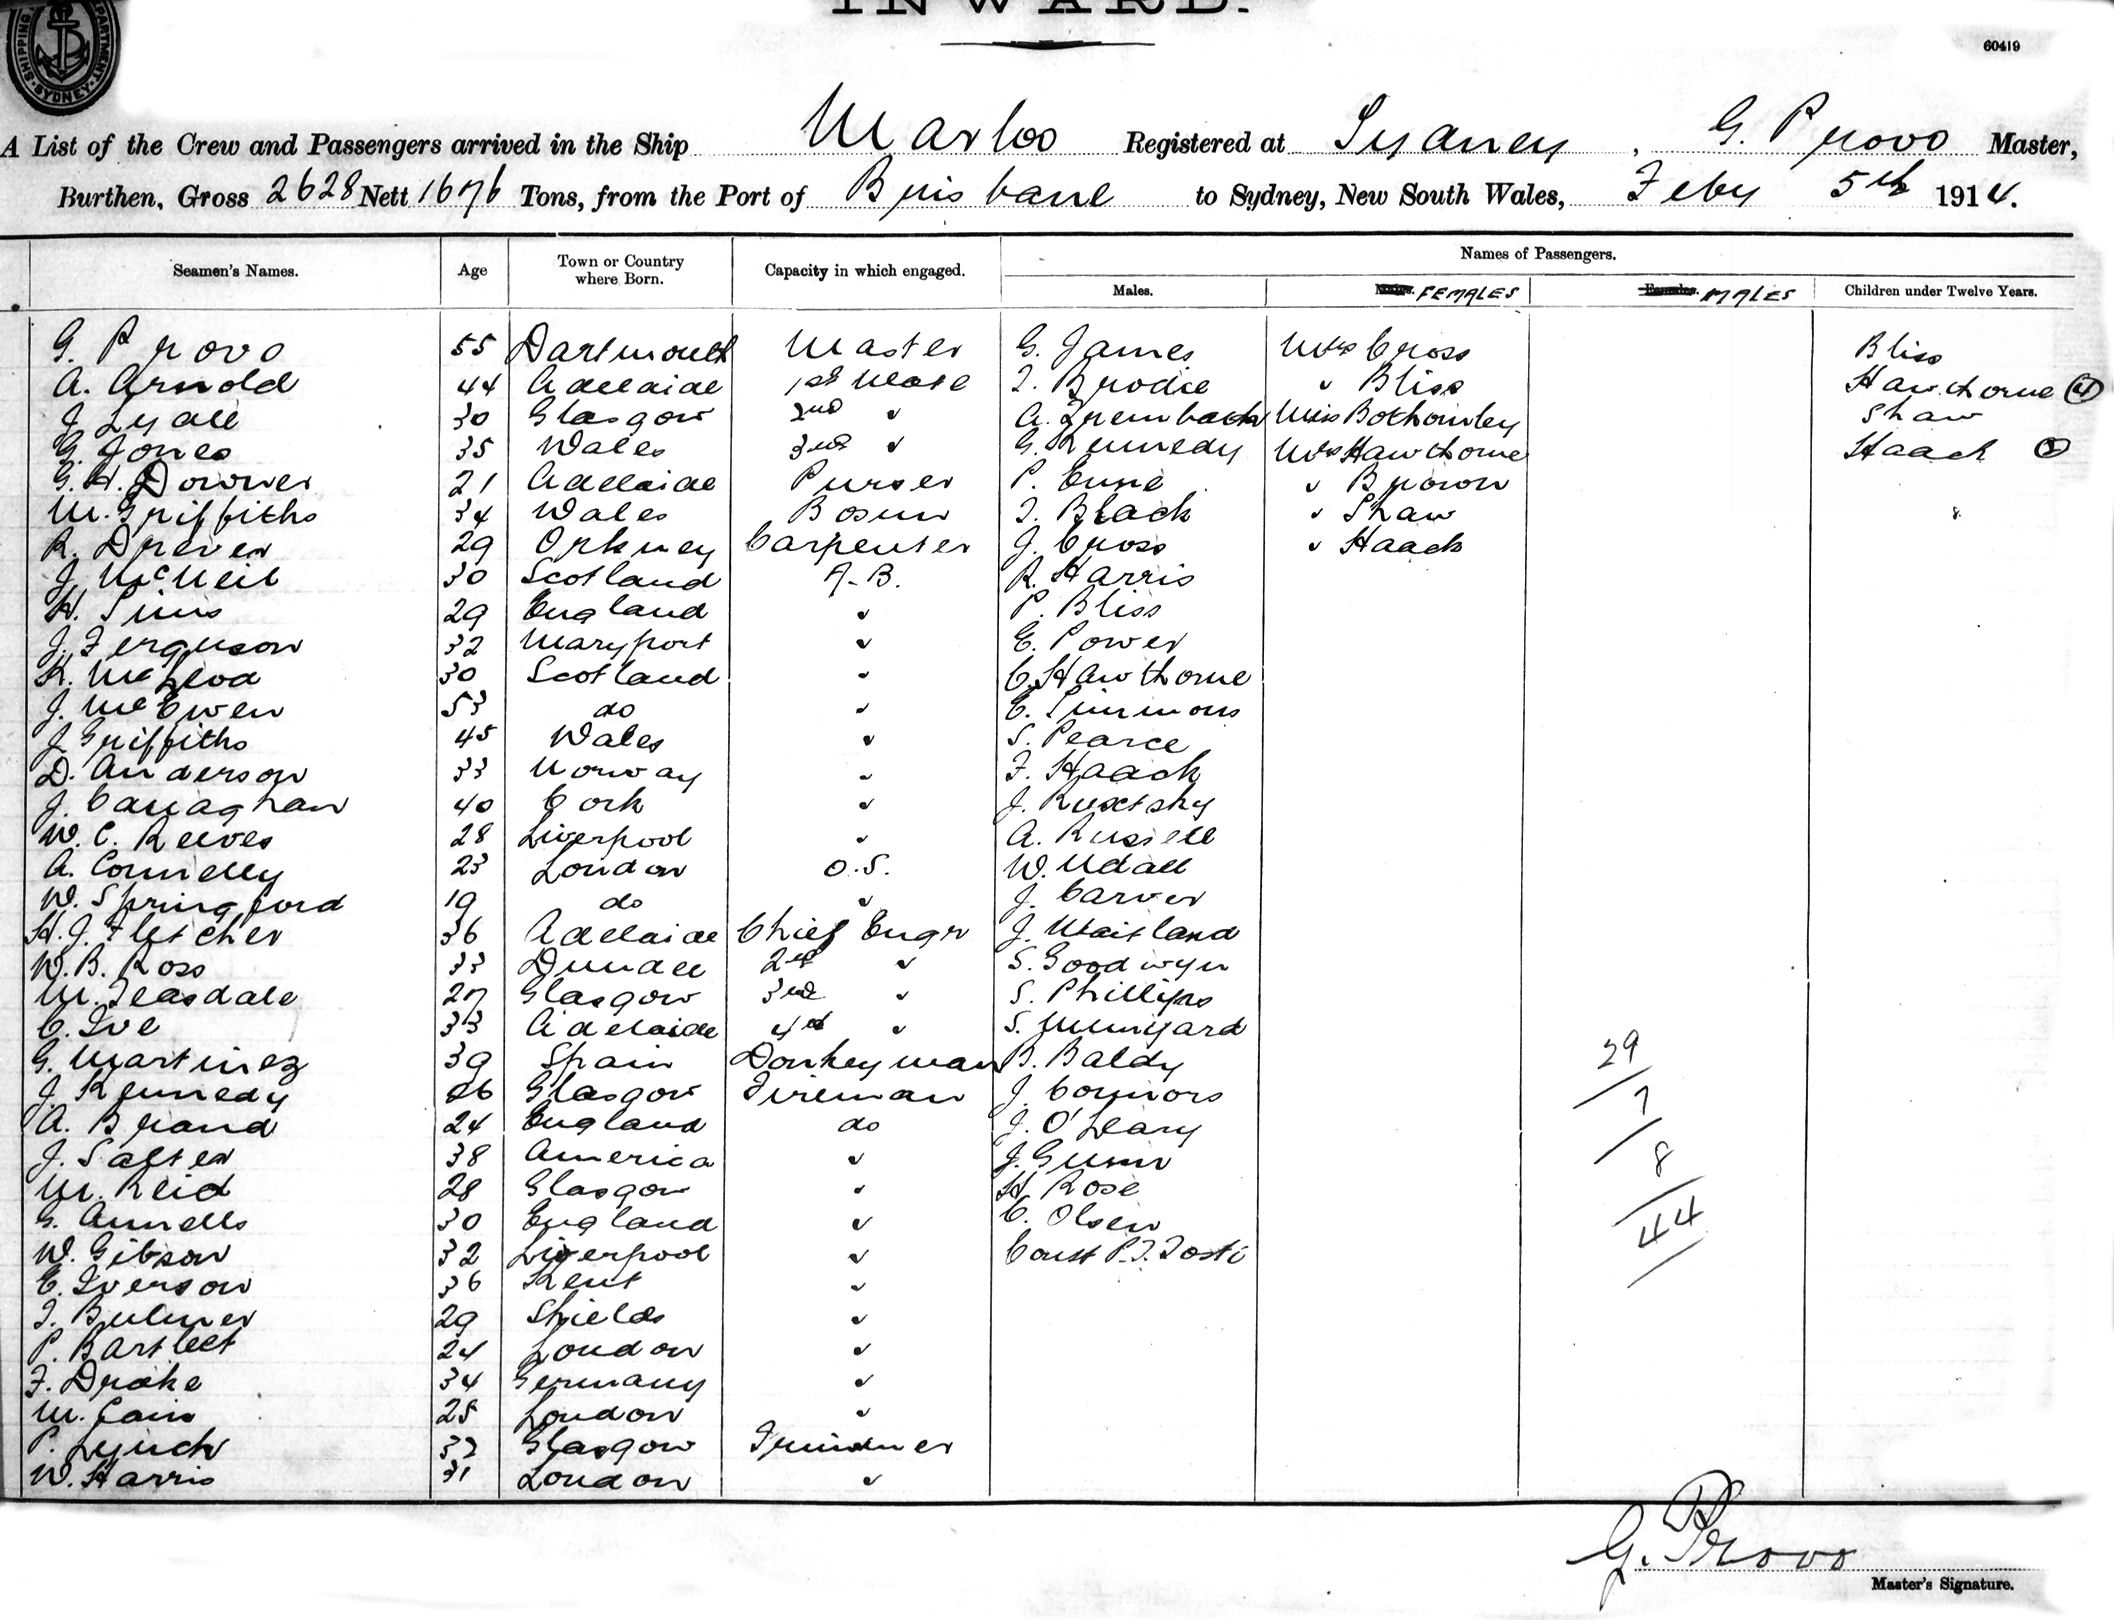 INWARD.
60419
SHIPPING DEPARTMENT SYDNEY
A List of the Crew and Passengers arrived in the Ship Marloo Registered at Sydney, G. Provo Master,
Burthen, Gross 2628 Nett 1676 Tons, from the Port of Brisbane to Sydney, New South Wales, Feby 5th 1914.
Seamen's Names. Age Town or Country where Born. Capacity in which engaged. Names of Passengers.
Males. FEMALES MALES Children under Twelve Years.
G. Provo 55 Dartmouth Master G. James Mrs Cross Bliss
A. Arnold 44 Adelaide 1st Mate T. Brodie " Bliss Hawthorne (4)
J. Lyall 30 Glasgow 2nd " A. Miss Bothomley Shaw
G. Jones 35 Wales 3rd " G. Kennedy Mrs Hawthorne Haack (2)
G. H. Dowwer 21 Adelaide Purser P. " Brown
M. Griffiths 34 Wales Bosun T. Black " Shaw 8
R. Drever 29 Orkney Carpenter J. Cross " Haack
J. McNeil 30 Scotland A.B. R. Harris
H. Sims 29 England " P. Bliss
J. Ferguson 32 Maryport " E. Power
K. McLeod 30 Scotland " C. Hawthorne
J. McEwen 53 do " E. Simmons
J. Griffiths 45 Wales " S. Pearce
D. Anderson 33 Norway " F. Haack
J. Callaghan 40 Cork " J.
W. C. Reeves 28 Liverpool " A. Russell
A. Connelly 23 London O.S. W. Udall
W. Springford 19 do " J. Carver
H. J. Fletcher 36 Adelaide Chief Engr J. Maitland
W. B. Ross 33 Dundee 2nd " S. Goodwyn
M. Teasdale 27 Glasgow 3rd " S. Phillips
C. Ive 33 Adelaide 4th " S.
G. Martinez 39 Spain Donkeyman B. Baldy 29
J. Kennedy 26 Glasgow Fireman J. Connors 7
A. Brand 24 England do J. O'Leary
J. Salter 38 America " J. Gunn 8
M. Reid 28 Glasgow " H. Rose
G. Annells 30 England " C. Olsen 44
W. Gibson 32 Liverpool " Const P. J.
E. Iverson 36 Kent "
T. Bulmer 29 Shields "
P. Bartlett 24 London "
F. Drake 34 Germany "
M. Cain 25 London "
P. Lynch 32 Glasgow Trimmer
W. Harris 31 London "
G. Provo
Master's Signature.